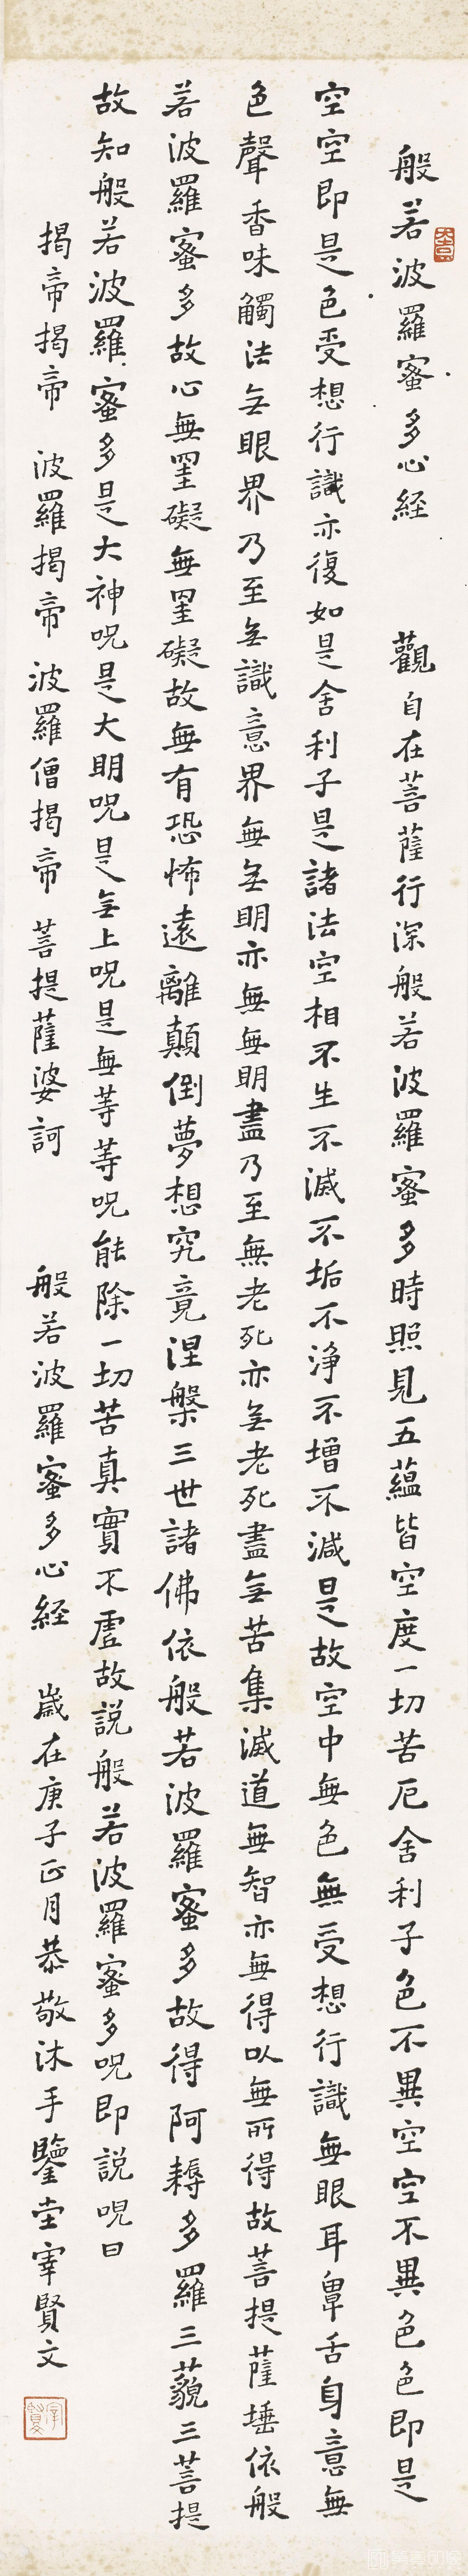 般若波羅蜜多心経 觀自在菩薩行深般若波羅蜜多時照見五蘊皆空度一切苦厄舍利子色不異空空不異色色即是
空空即是色受想行識亦復如是舍利子是諸法空相不生不滅不垢不淨不增不減是故空中無色無受想行識無眼耳鼻舌身意無
色聲香味觸法無眼界乃至無識意界無無明亦無無明盡乃至無老死亦無老死盡無苦集滅道無智亦無得以無所得故菩提薩埵依般
若波羅蜜多故心無罣礙無罣礙故無有恐怖遠離顛倒夢想究竟涅槃三世諸佛依般若波羅蜜多故得阿耨多羅三藐三菩提
故知般若波羅蜜多是大神呪是大明呪是無上呪是無等等呪能除一切苦真實不虛故説般若波羅蜜多呪即説呪曰
揭帝揭帝 波羅揭帝 波羅僧揭帝 菩提薩婆訶 般若波羅蜜多心経 歲在庚子正月恭敬沐手鑒堂宰賢文
宰賢文